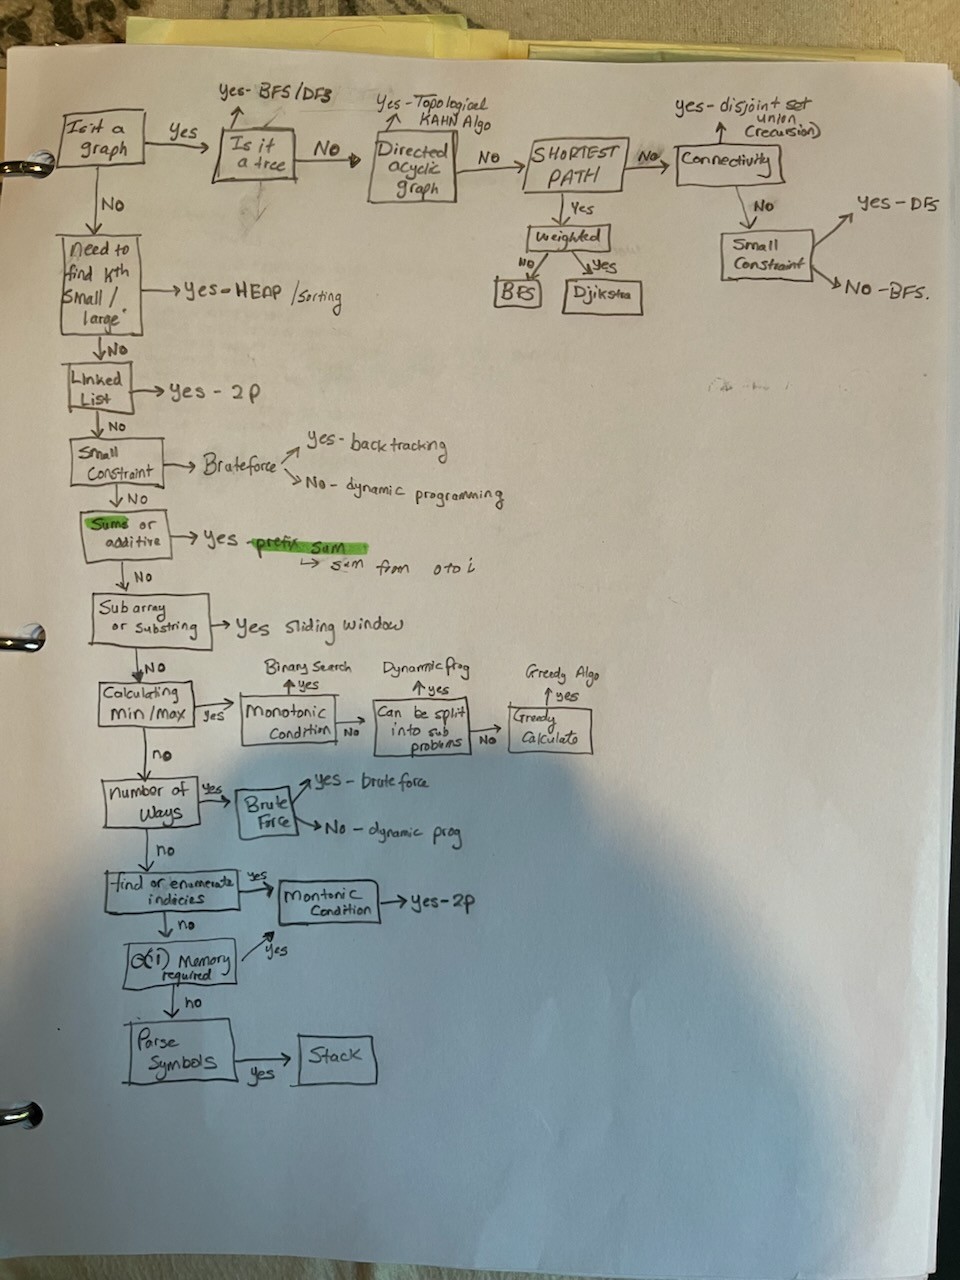 Is it a
graph
Yes
Is it
a tree
yes- BFS/DFS
NO
Directed
acyclic
graph
Yes - Topological
KAHN Algo
NO
SHORTEST
PATH
Yes
Weighted
NO
BFS
Yes
Djikstra
NO
Connectivity
yes - disjoint set
union
(recursion)
NO
Small
Constraint
yes - DFS
NO - BFS.
NO
need to
find Kth
Small /
large
Yes - HEAP / Sorting
NO
Linked
List
Yes - 2P
NO
Small
Constraint
Bruteforce
Yes - back tracking
No - dynamic programming
NO
Sums or
additive
yes - prefix sum
↳ sum from 0 to i
NO
Sub array
or substring
Yes sliding window
NO
Calculating
Min/max
yes
Monotonic
Condition
yes
Binary Search
NO
Can be split
into sub
problems
yes
Dynamic prog
NO
Greedy
Calculate
yes
Greedy Algo
no
number of
Ways
yes
Brute
Force
yes - brute force
No - dynamic prog
no
find or enumerate
indicies
yes
Montonic
Condition
yes - 2p
no
O(1) Memory
required
yes
no
Parse
Symbols
yes
Stack